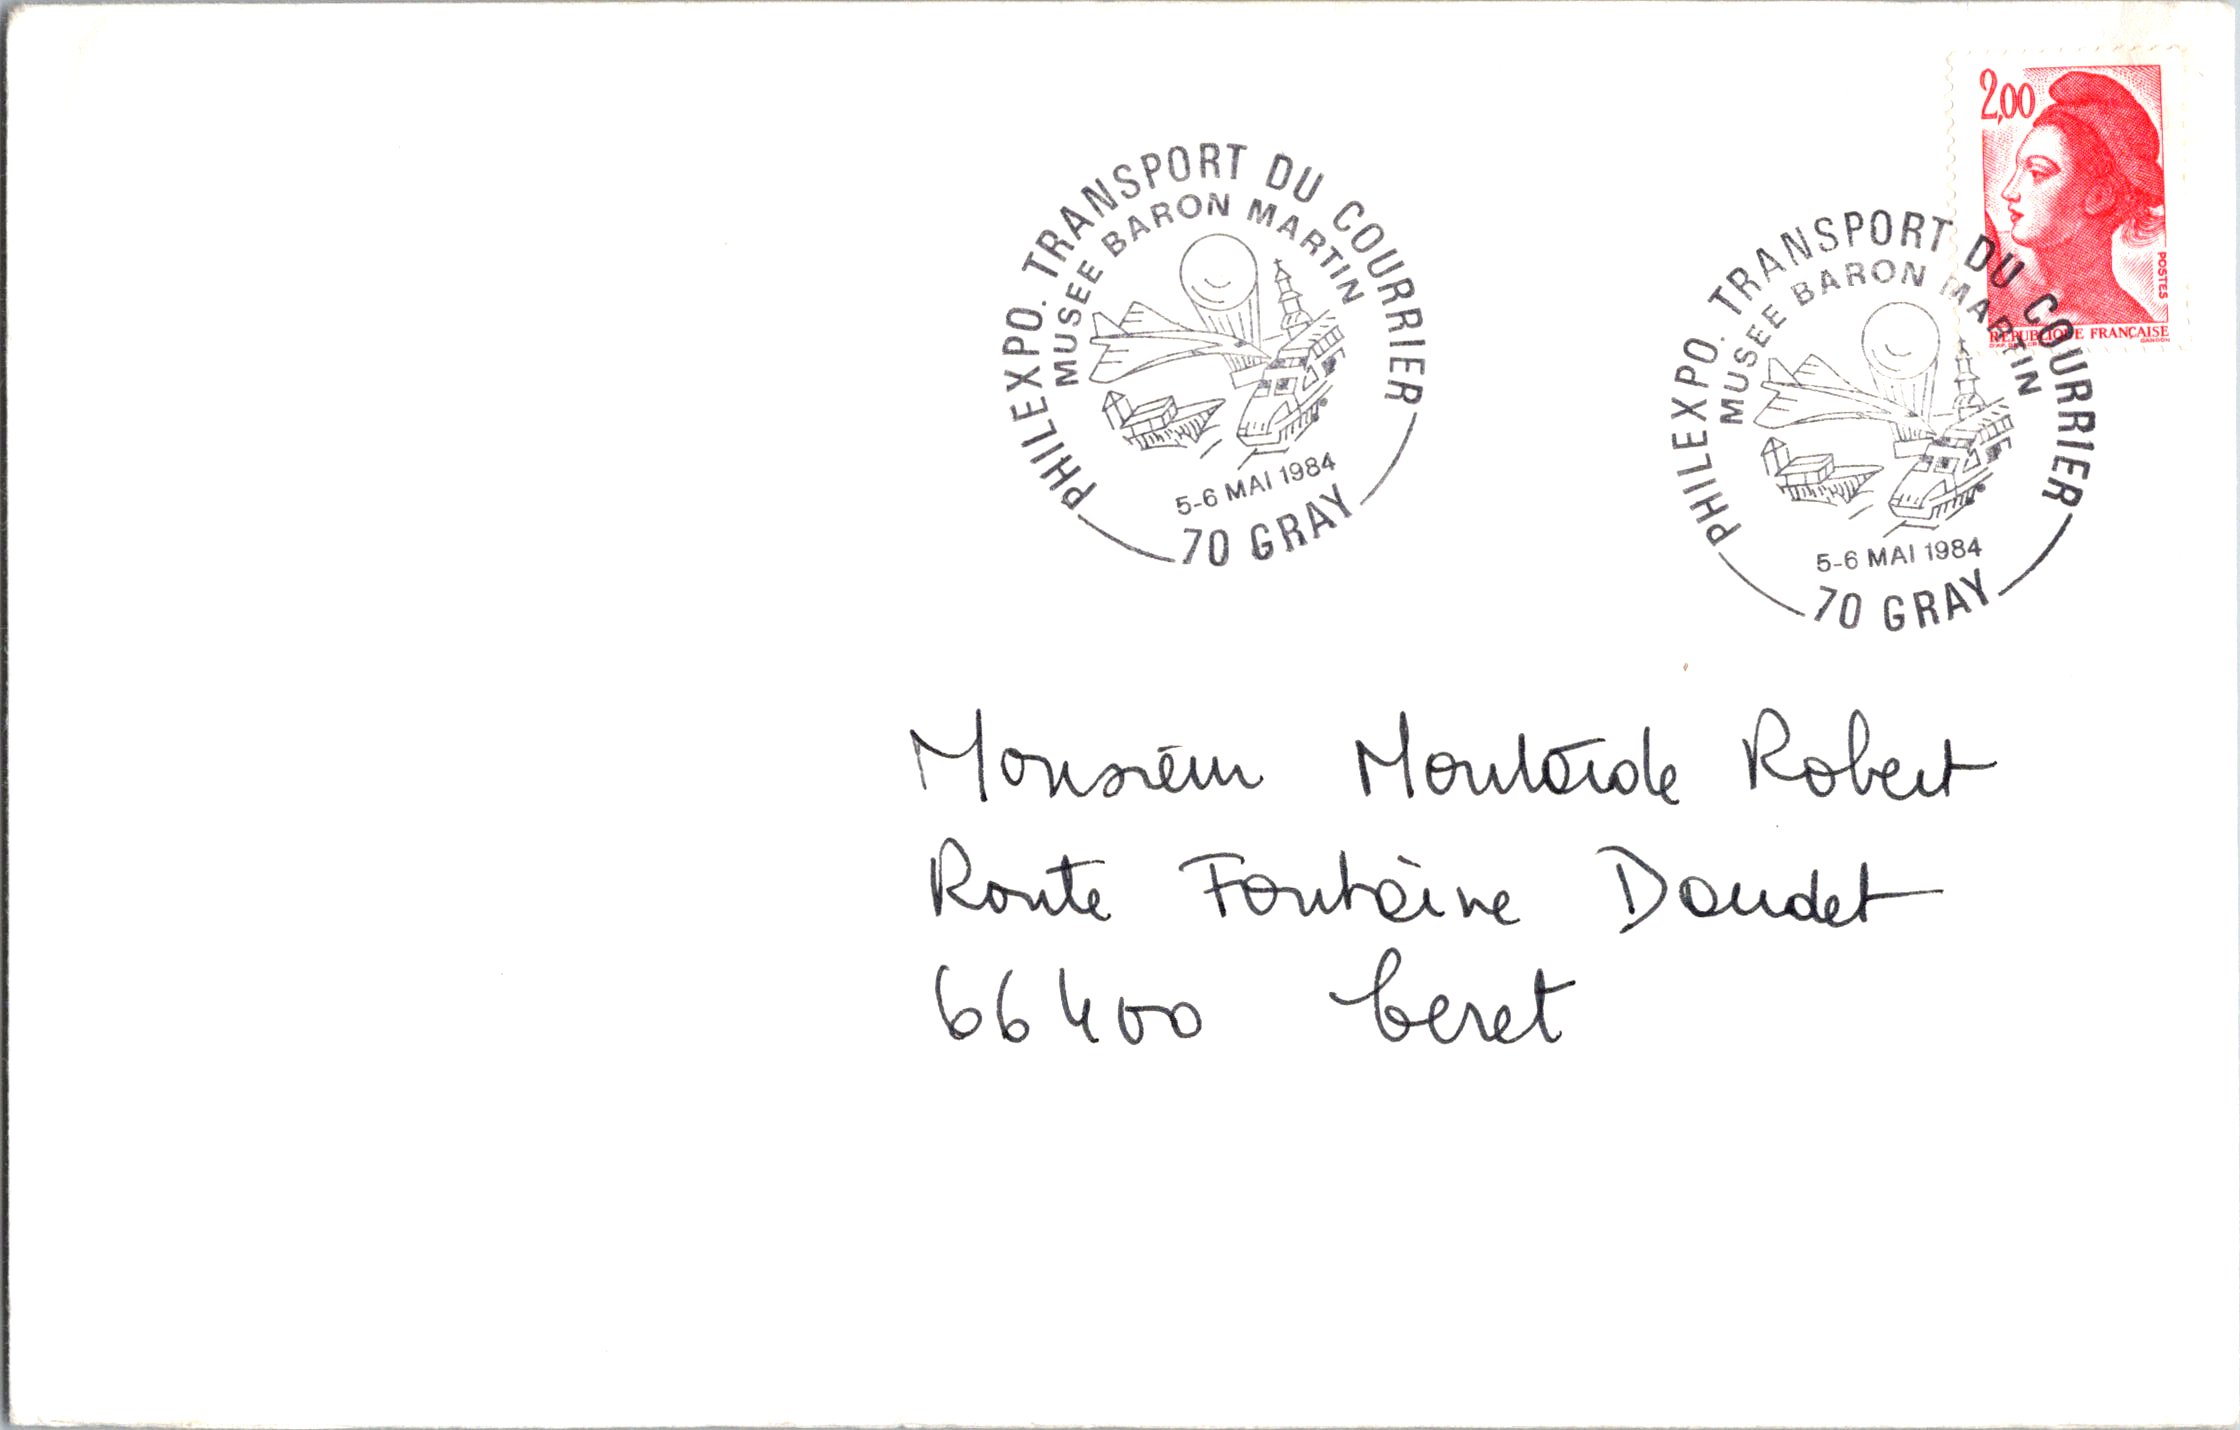 2,00
POSTES
REPUBLIQUE FRANÇAISE
GANDON
PHILEXPO. TRANSPORT DU COURRIER
MUSEE BARON MARTIN
5-6 MAI 1984
70 GRAY
PHILEXPO. TRANSPORT DU COURRIER
MUSEE BARON MARTIN
5-6 MAI 1984
70 GRAY
Monsieur Robert
Route Fontaine Daudet
66400 Ceret